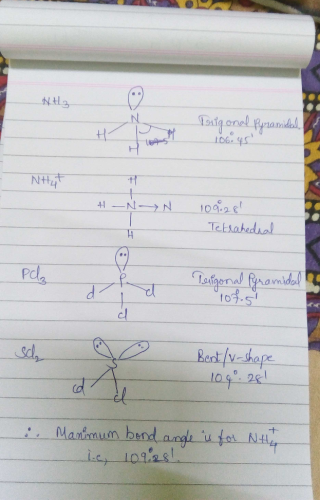 NH3
N
H H
H
Trigonal Pyramidal
106°.45'
NH4+
H
H — N → N
H
109°.28'
Tetrahedral
PCl3
P
Cl Cl
Cl
Trigonal Pyramidal
107.5°
SCl2
S
Cl Cl
Bent/V-shape
109°.28'
∴ Maximum bond angle is for NH4+
i.e, 109°.28'.